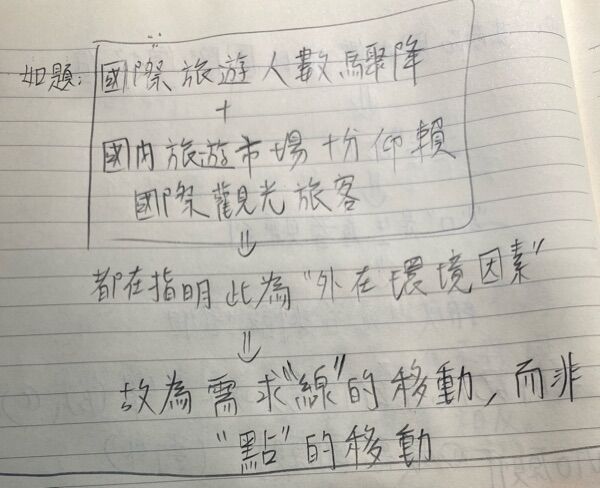 如題:國際旅遊人數驟降
+
國內旅遊市場十分仰賴
國際觀光旅客
⇓
都在指明此為"外在環境因素"
⇓
故為需求"線"的移動,而非
"點"的移動